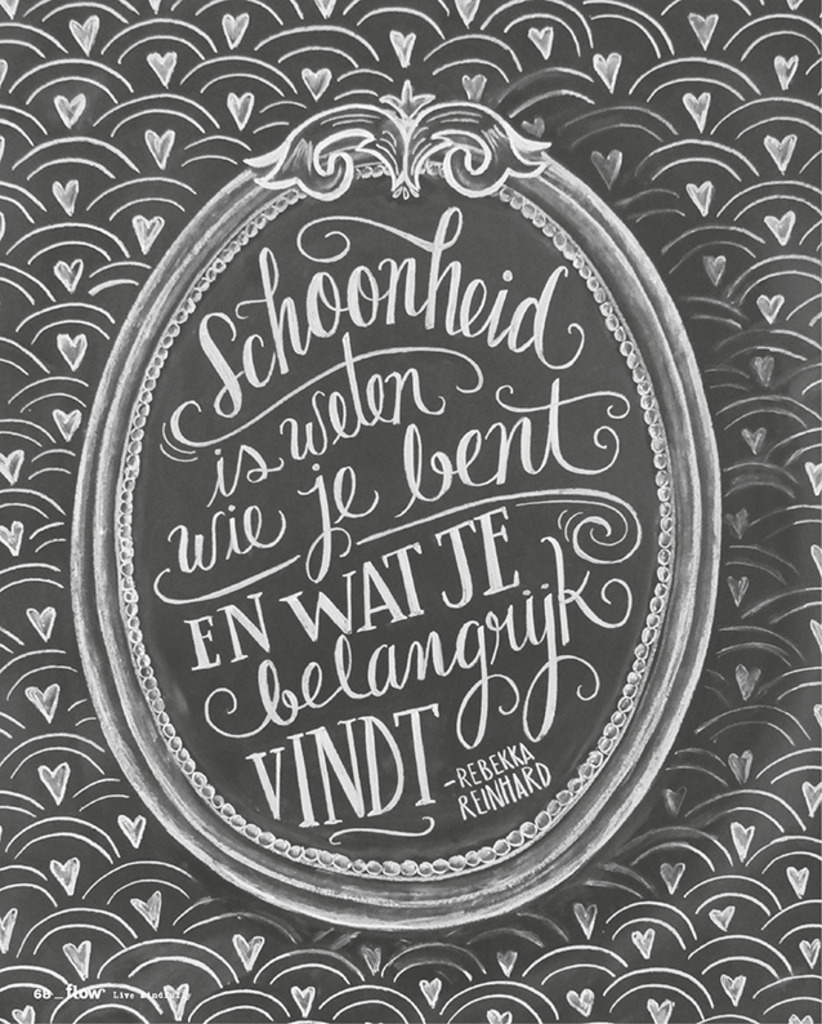 Schoonheid
is weten
wie je bent
EN WAT JE
belangrijk
VINDT
-REBEKKA
REINHARD
68_flow Live mindfully